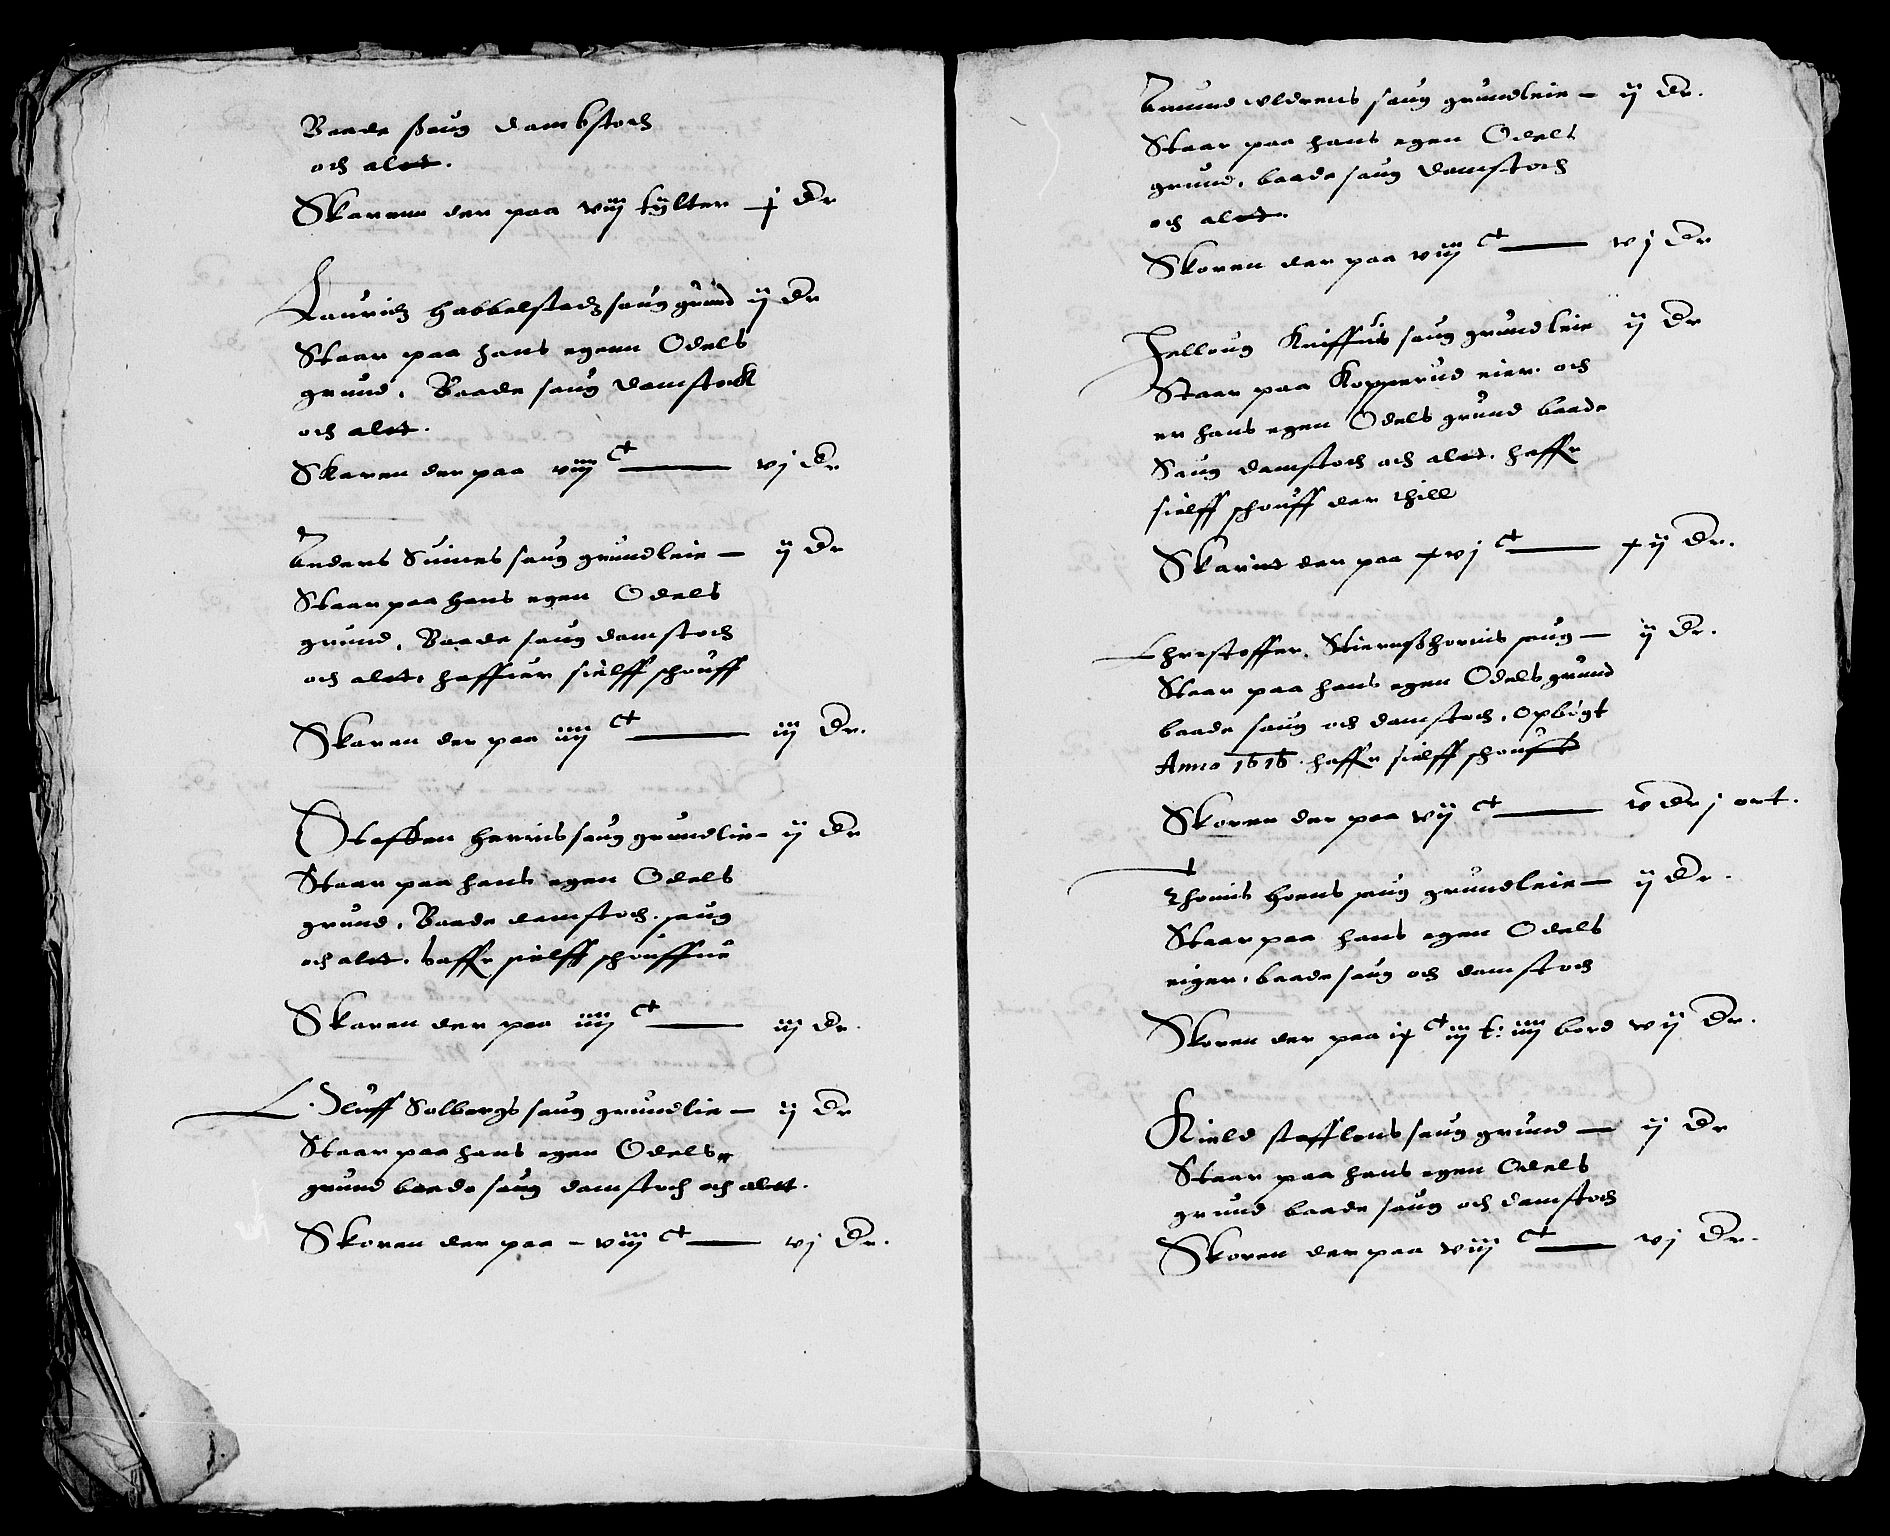 Baade saug dambstoch
och altt.
Skarenn der paa viij tylter — j Dr
Lauridz habbelstadz saug grund ij Dr
Staar paa hans egenn Odels
grund, Baade saug damstock
och altt.
Skaren der paa viiij C — vj Dr
Anders Suines saug grundleie — ij Dr
Staar paa hans egen Odels
grund, Baade saug damstoch
och altt, haffuer sielff schouff
Skaren der paa iiij C — iij Dr.
Steffen herins saug grundlie — ij Dr
Staar paa hans egen Odels
grund, Baade damstoch saug
och altt, haffr sielff schouffue
Skaren der paa iiij C — iij Dr.
Oluff Solbergs saug grundlie — ij Dr
Staar paa hans egen Odels
grund baade saug damstoch och altt.
Skoren der paa — viij C — vj Dr.
Amund saug grundleie — ij Dr.
Staar paa hans egen Odels
grund, baade saug damstoch
och altt.
Skoren der paa viij C — vj Dr
Helloug saug grundleie ij Dr
Staar paa Kopperud eier och
er hans egen Odels grund baade
Saug damstoch och altt, haffr
sielff schouff der thill
Skarint der paa xvj C — xij Dr.
Christoffer saug — ij Dr.
Staar paa hans egen Odels grund
baade saug och damstoch, opbygt
Anno 1616. haffr sielff schouff
Skoren der paa vij C — v Dr j ort.
Thomis hoens saug grundleie — ij Dr.
Staar paa hans egen Odels
eiger, baade saug och damstoch
Skoren der paa ix C iij t: iiij bord vij Dr.
Kield stefflens saug grund — ij Dr
Staar paa hans egen Odels
grund baade saug och damstoch
Skoren der paa viij C — vj Dr.